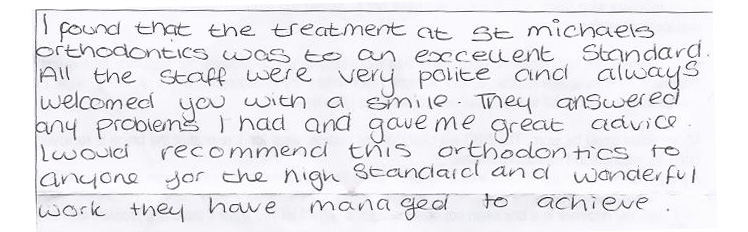 I found that the treatment at St michaels
orthodontics was to an excellent Standard.
All the Staff were very polite and always
welcomed you with a smile. They answered
any problems I had and gave me great advice.
I would recommend this orthodontics to
anyone for the high Standard and wonderful
work they have managed to achieve.